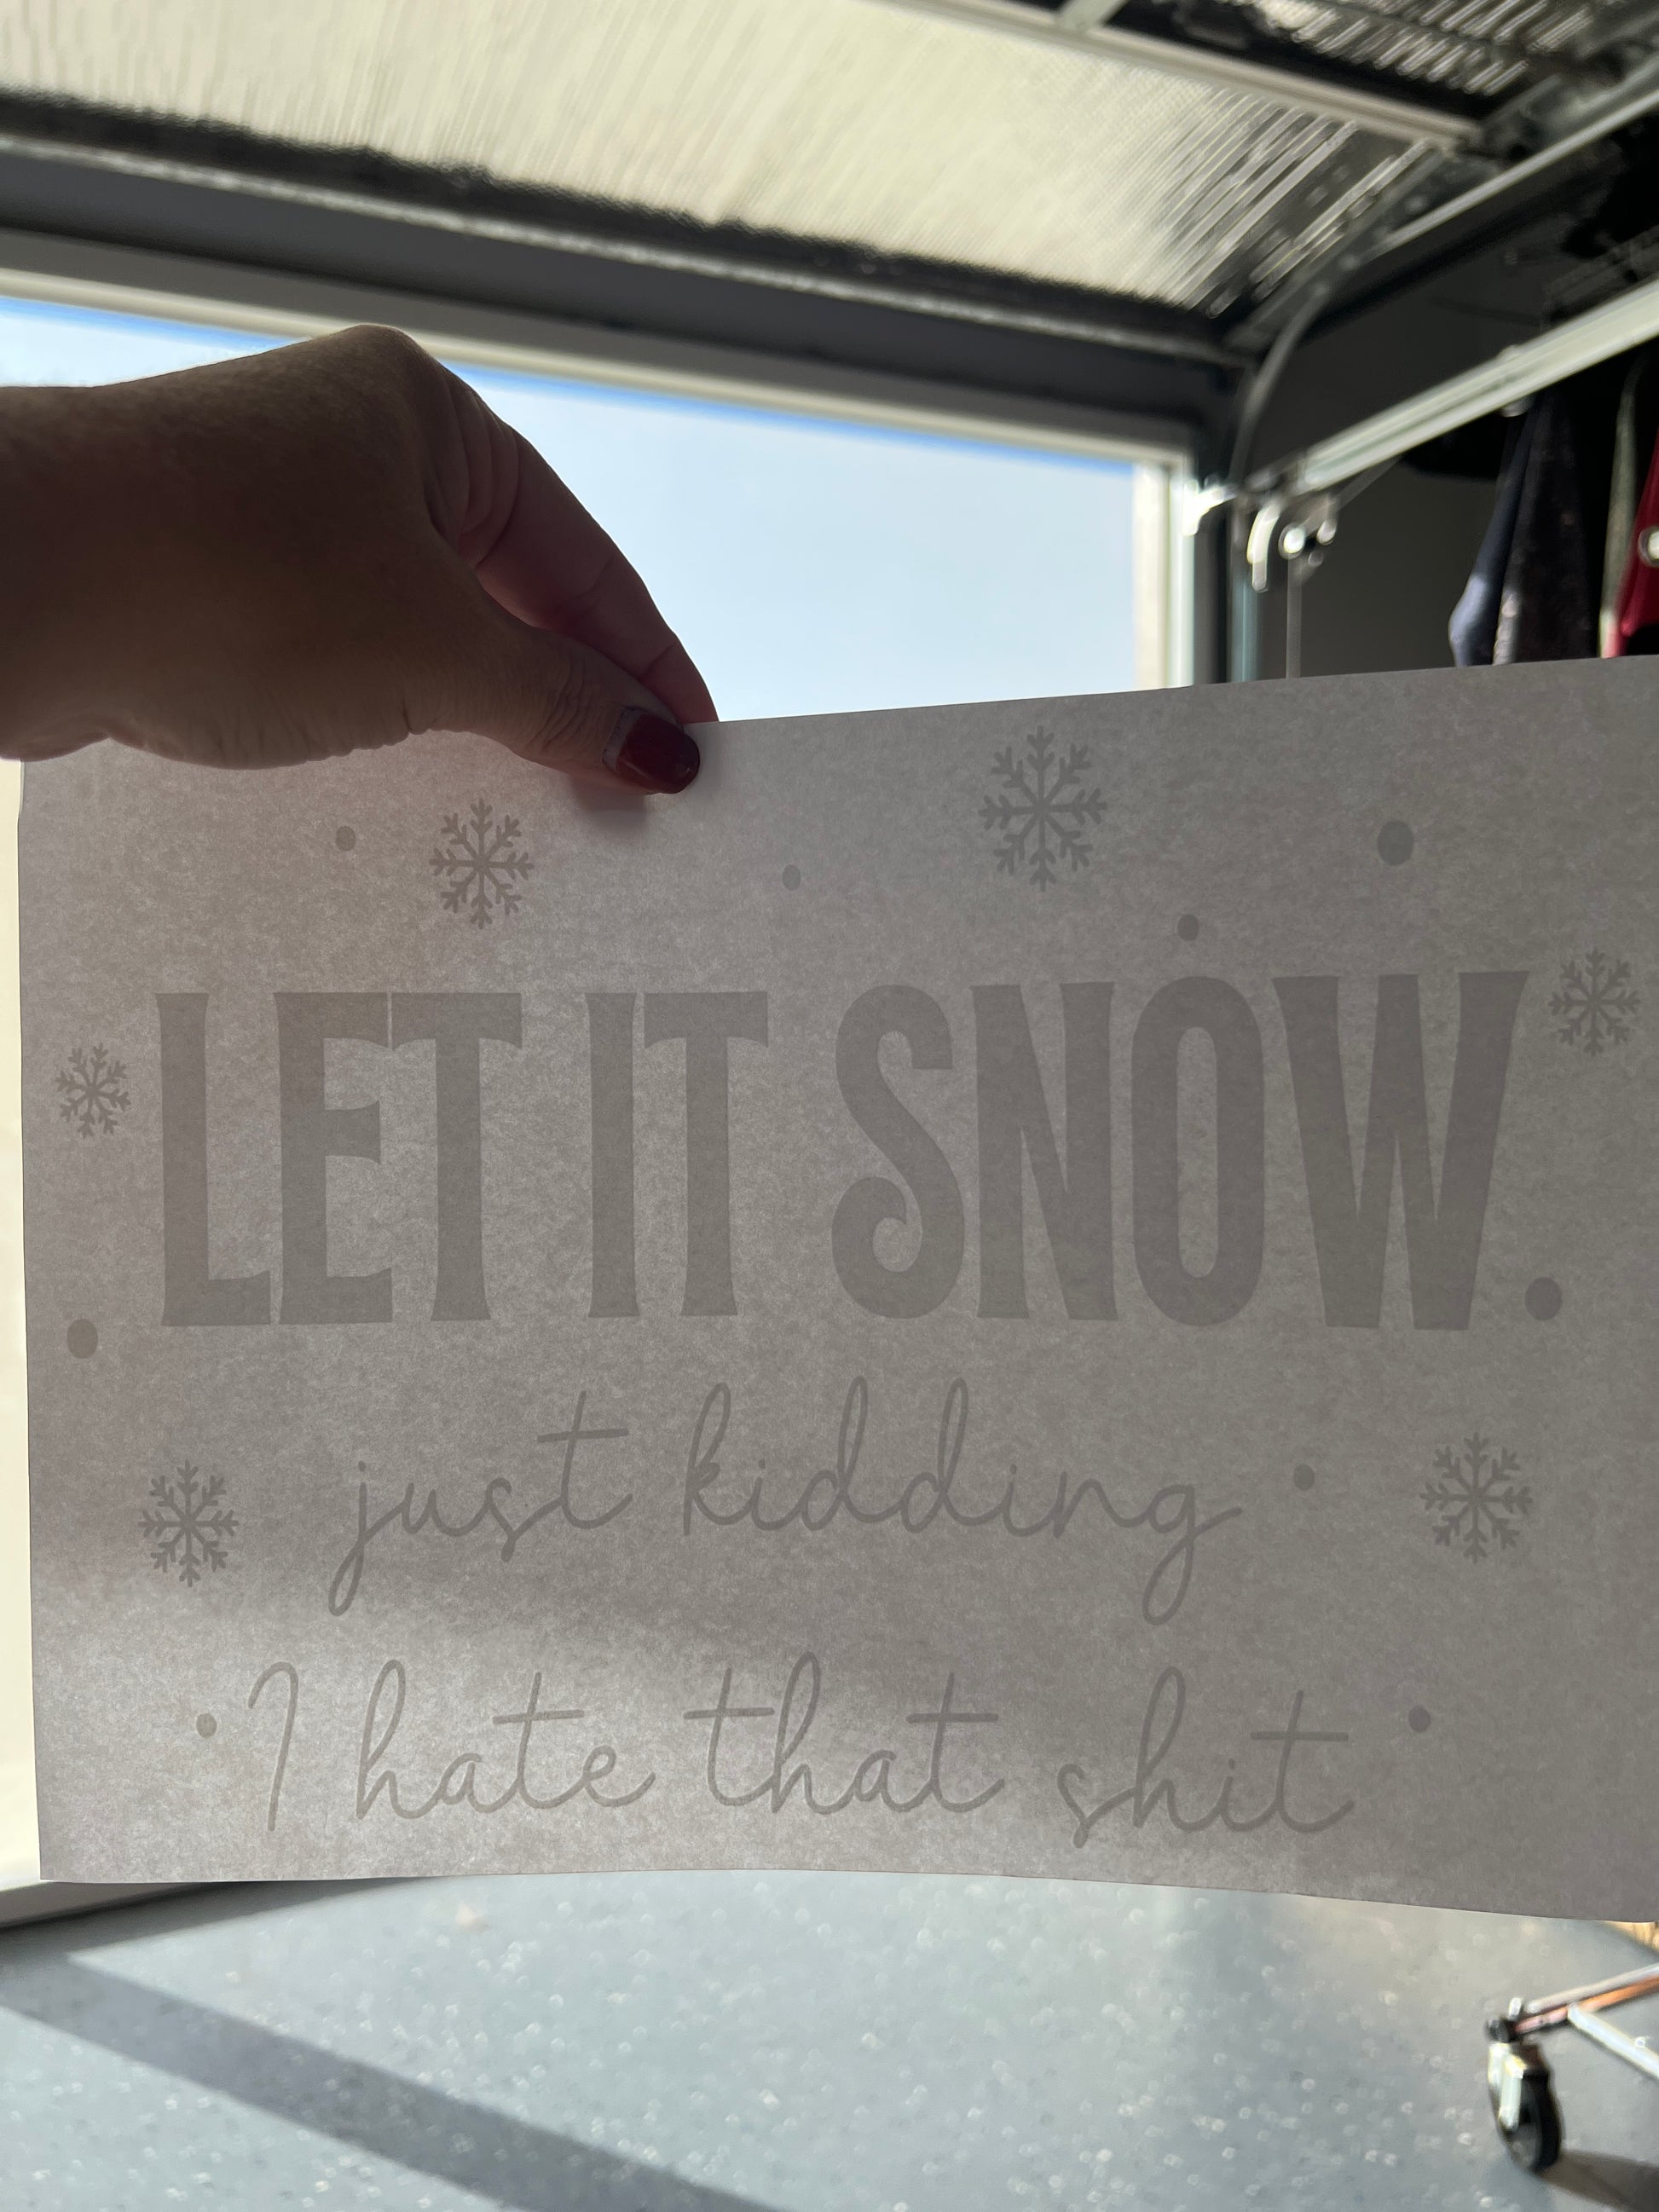 LET IT SNOW.
just kidding
I hate that shit